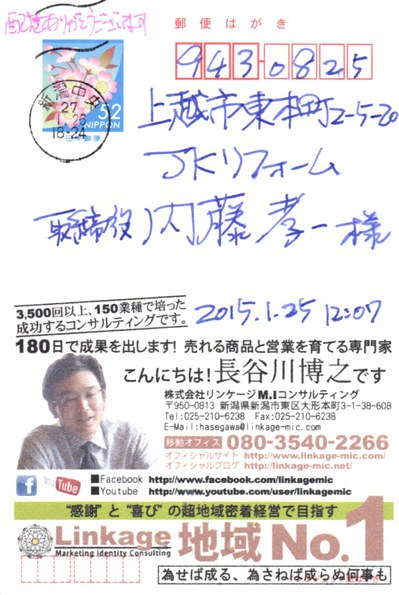 配達ありがとうございます
郵便はがき
943-0825
新潟中央
27
18-24
52
NIPPON
日本郵便
上越市東本町2-5-20
JKリフォーム
取締役 内藤孝一様
2015.1.25 12:07
3,500回以上、150業種で培った
成功するコンサルティングです。
180日で成果を出します! 売れる商品と営業を育てる専門家
こんにちは!長谷川博之です
株式会社リンケージM.Iコンサルティング
〒950-0813 新潟県新潟市東区大形本町3-1-38-608
Tel:025-210-6238 Fax:025-210-6239
E-Mail:hasegawa@linkage-mic.com
移動オフィス 080-3540-2266
オフィシャルサイト http://www.linkage-mic.com/
オフィシャルブログ http://linkage-mic.net/
f You Tube
■Facebook http://www.facebook.com/linkagemic
■Youtube http://www.youtube.com/user/linkagemic
“感謝”と“喜び”の超地域密着経営で目指す
Linkage 地域No.1
Marketing Identity Consulting
為せば成る、為さねば成らぬ何事も